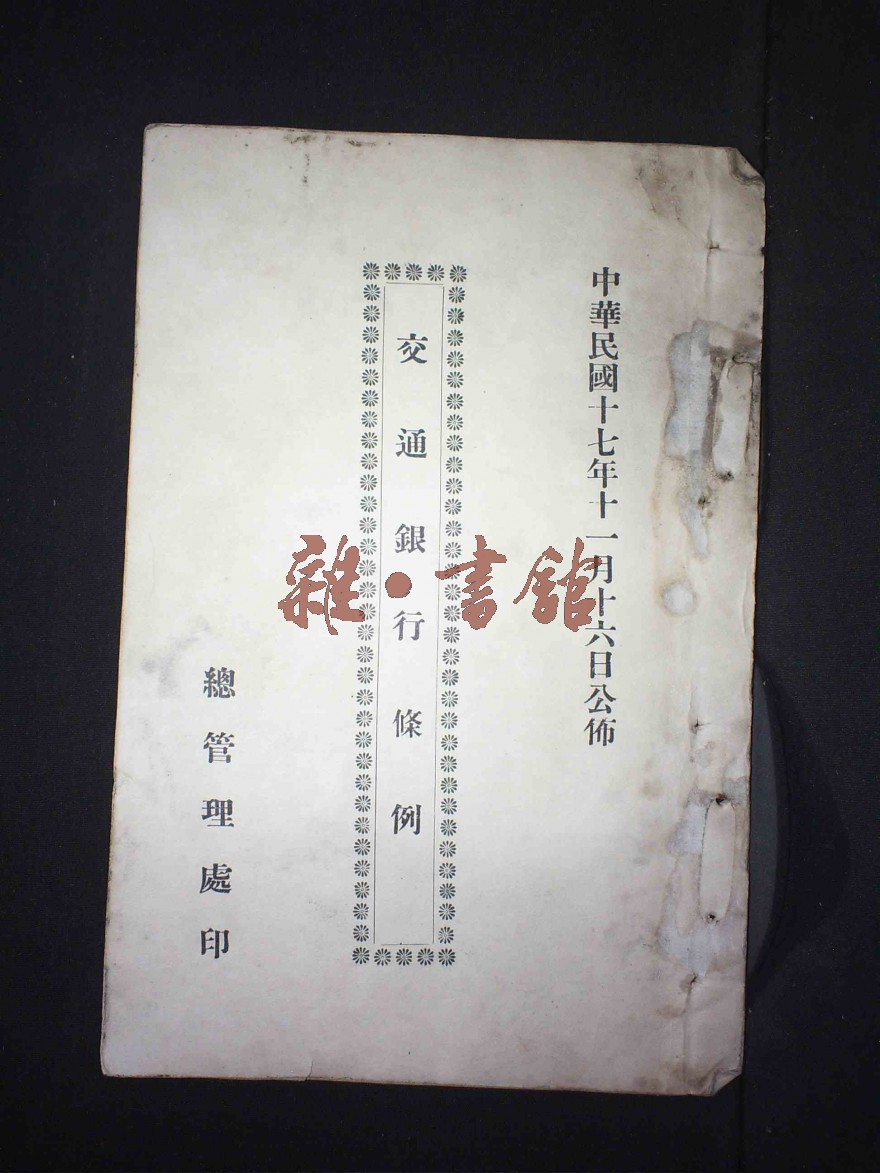 中華民國十七年十一月十六日公佈
交通銀行條例
總管理處印
雜·書館